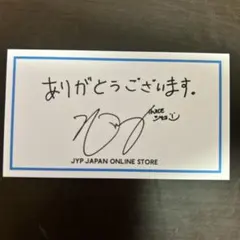 ありがとうございます。
JYP JAPAN ONLINE STORE